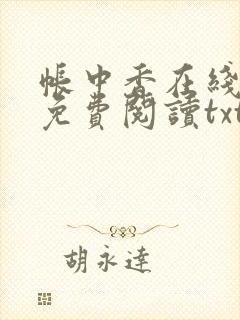 帳中香在綫
免費閱讀txt
胡永達